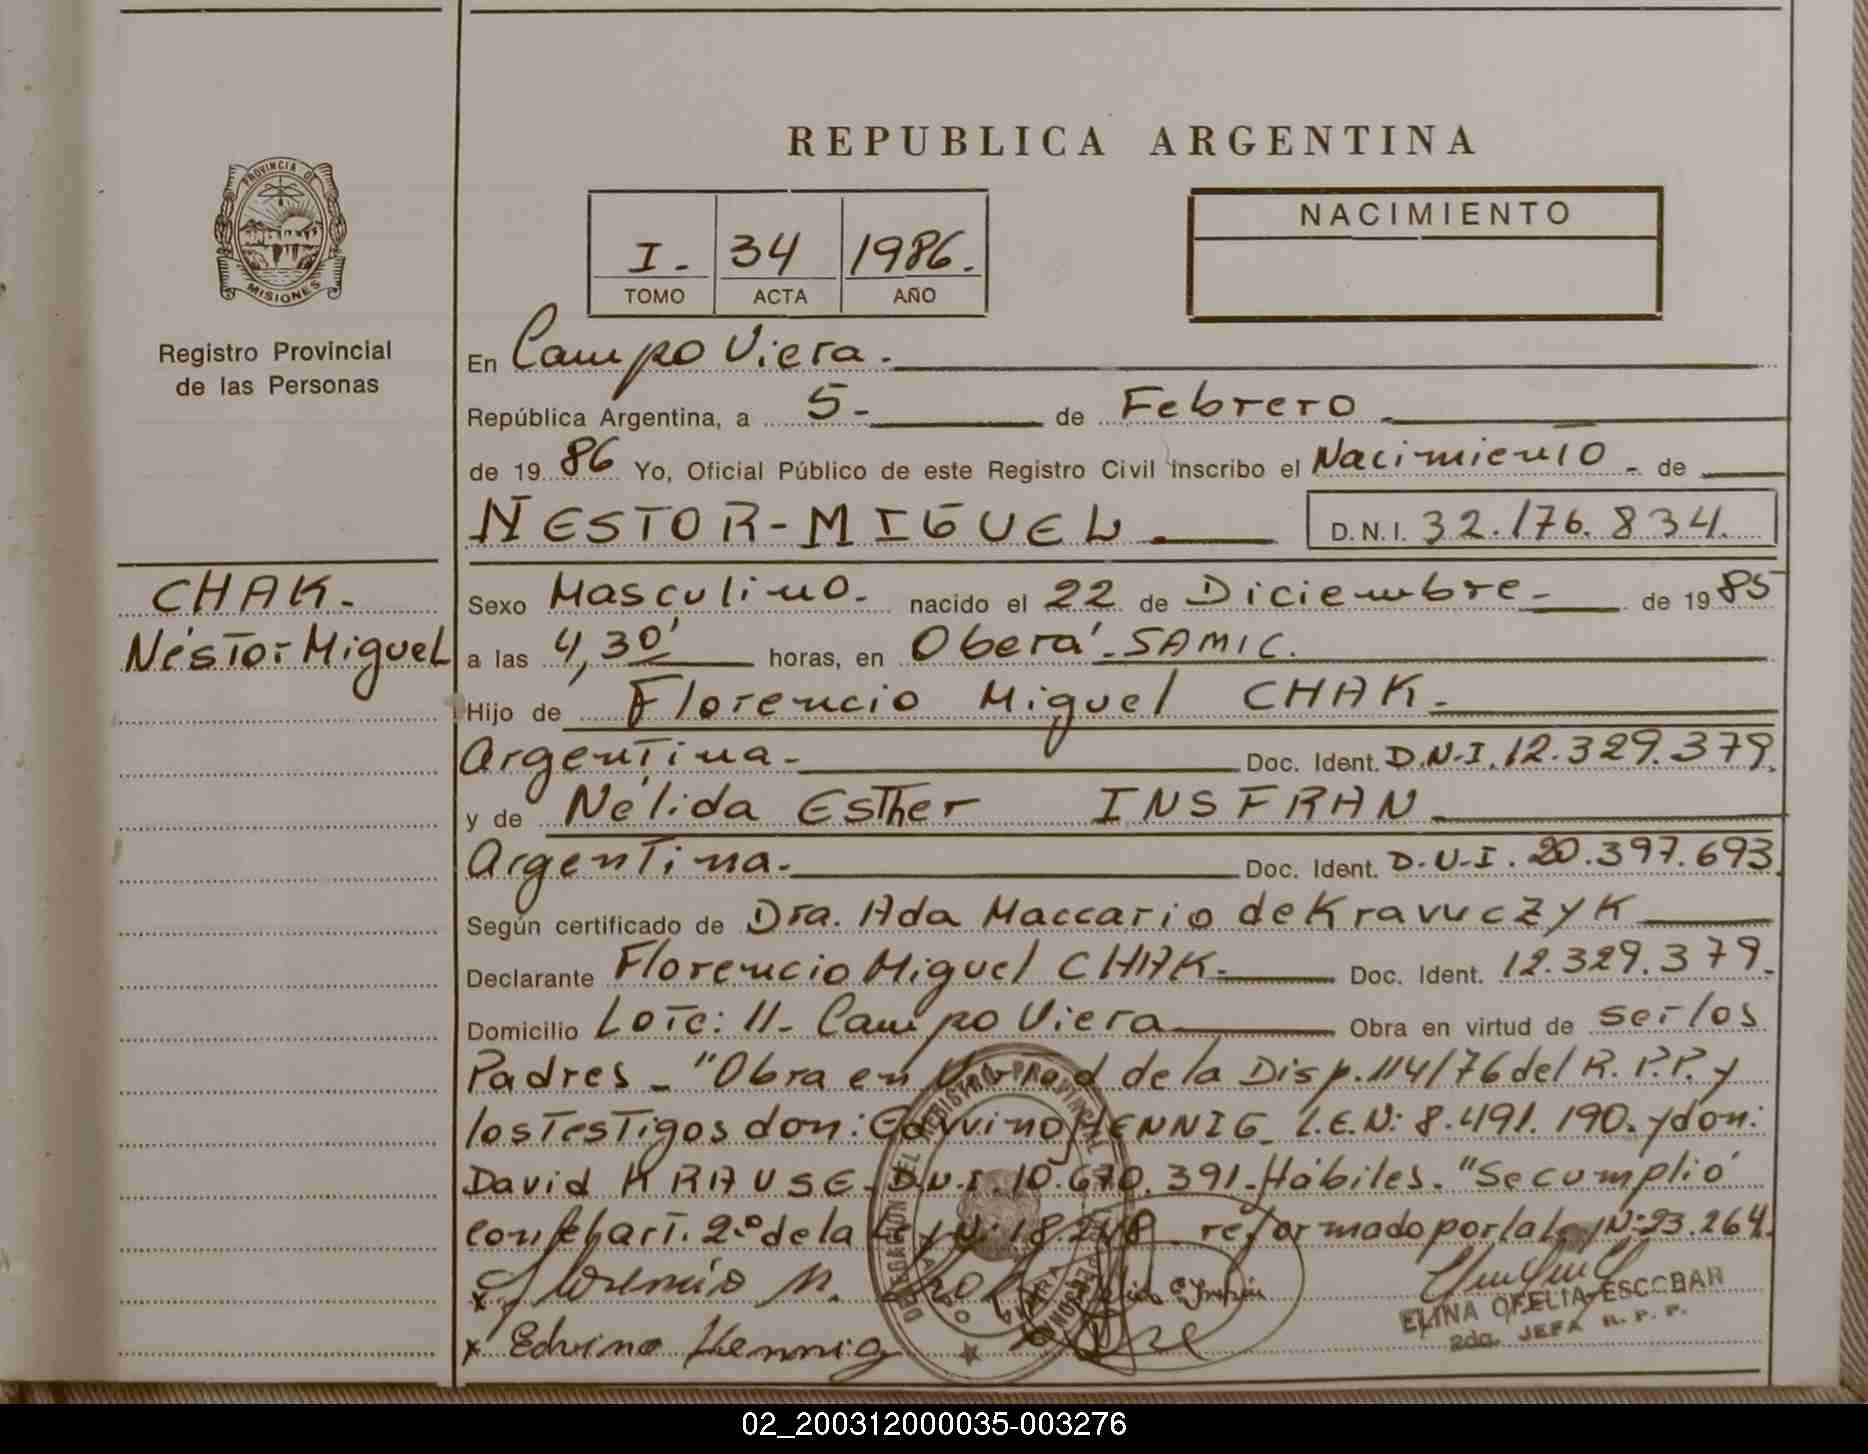 REPUBLICA ARGENTINA
PROVINCIA DE
MISIONES
Registro Provincial
de las Personas
I.
34
1986.
TOMO
ACTA
AÑO
NACIMIENTO
En Campo Viera.
República Argentina, a 5- de Febrero
de 19 86 Yo, Oficial Público de este Registro Civil inscribo el Nacimiento - de
NESTOR-MIGUEL
D.N.I. 32.176.834.
CHAK.
Néstor Miguel
Sexo Masculino. nacido el 22 de Diciembre - de 1985
a las 4,30' horas, en Oberá-SAMIC.
Hijo de Florencio Miguel CHAK.
Argentina- Doc. Ident. D.N.I. 12.329.379.
y de Nélida Esther INSFRAN
Argentina. Doc. Ident. D.N.I. 20.397.693
Según certificado de Dra. Ada Maccario de Kravuczyk
Declarante Florencio Miguel CHAK. Doc. Ident. 12.329.379.
Domicilio Lote: 11- Campo Viera Obra en virtud de ser los
Padres - "Obra en virtud de la Disp. 114/76 del R.P.P. y
los Testigos don: Edvvino HENNIG L.E.N: 8.491.190. y don:
David KRAUSE- D.N.I. 10.670.391- Hábiles. "Se cumplió
con el art. 2.º de la Ley N: 18.248 reformado por la Ley N: 23.264.
x Florencio M. Chak
ELINA OFELIA ESCOBAR
2da. JEFA R. P. P.
x Edvino Hennig
DELEGACION DEL REGISTRO PROVINCIAL
02_200312000035-003276